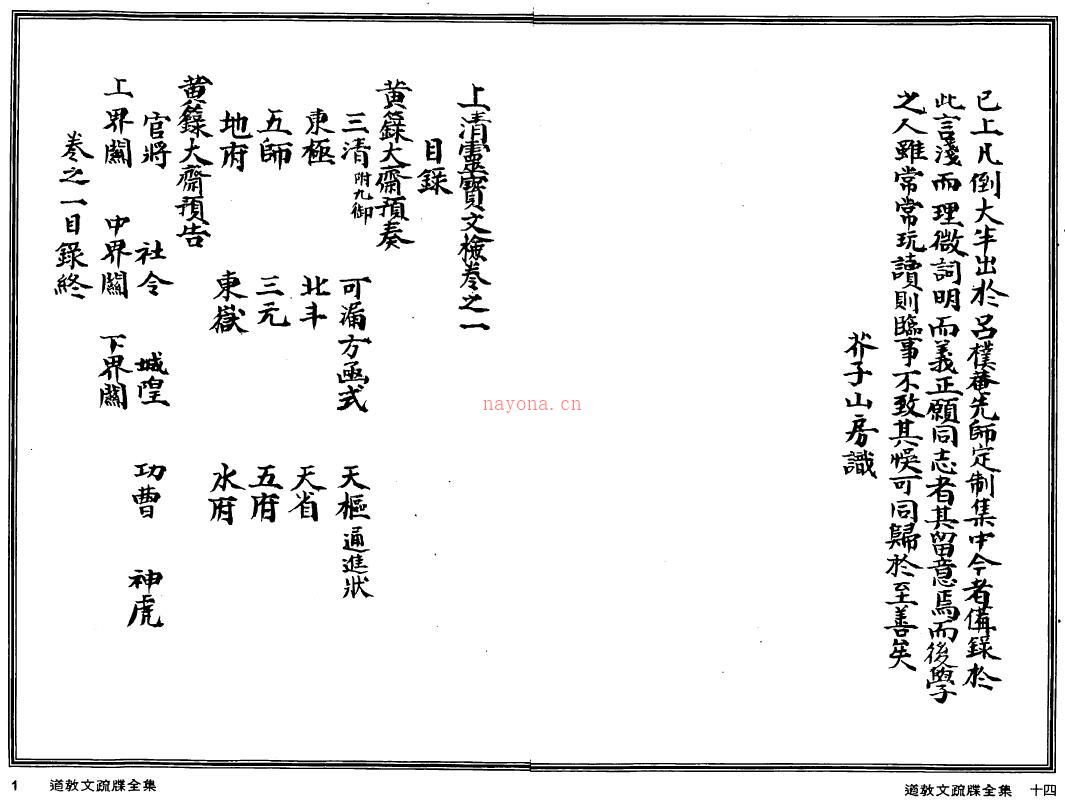 已上凡倒大半出於呂樸菴先師定制集中今者俻錄於
此言淺而理微詞明而義正願同志者其留意焉而後學
之人雖常常玩讀則臨事不致其悞可同歸於至善矣
芥子山房識
道敎文疏牒全集 十四
上清靈寶文檢卷之一
目錄
黃籙大齋預奏
三清附九御 可漏方函式 天樞通進狀
東極 北斗 天省
五師 三元 五府
地府 東嶽 水府
黃籙大齋預告
官將 社令 城隍 功曹 神虎
上界關 中界關 下界關
卷之一目錄終
1 道敎文疏牒全集
nayona.cn